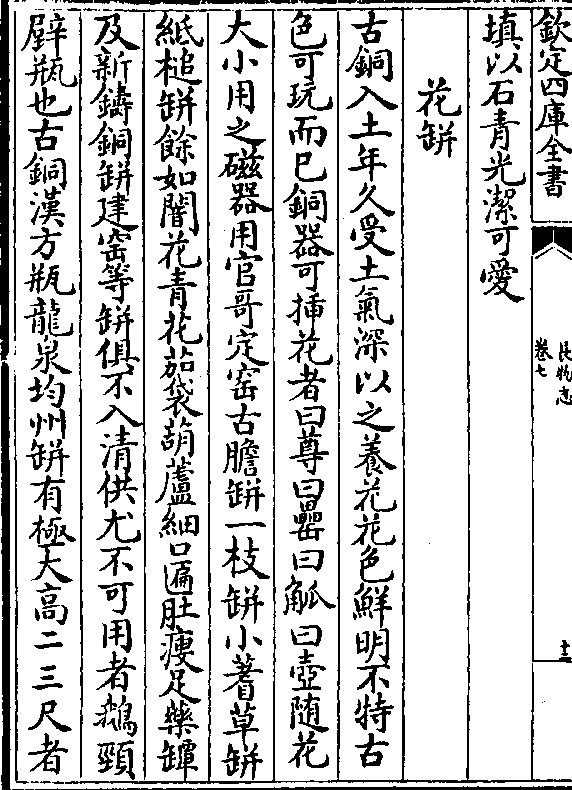 欽定四庫全書
長物志
卷七
十二
填以石青光潔可愛
花缾
古銅入土年久受土氣深以之養花花色鮮明不特古
色可玩而已銅器可插花者曰尊曰罍曰觚曰壺隨花
大小用之磁器用官哥定窑古膽缾一枝缾小蓍草缾
紙槌缾餘如闇花青花茄袋葫蘆細口匾肚瘦足藥罈
及新鑄銅缾建窑等缾俱不入清供尤不可用者鵝頸
壁瓶也古銅漢方瓶龍泉均州缾有極大高二三尺者